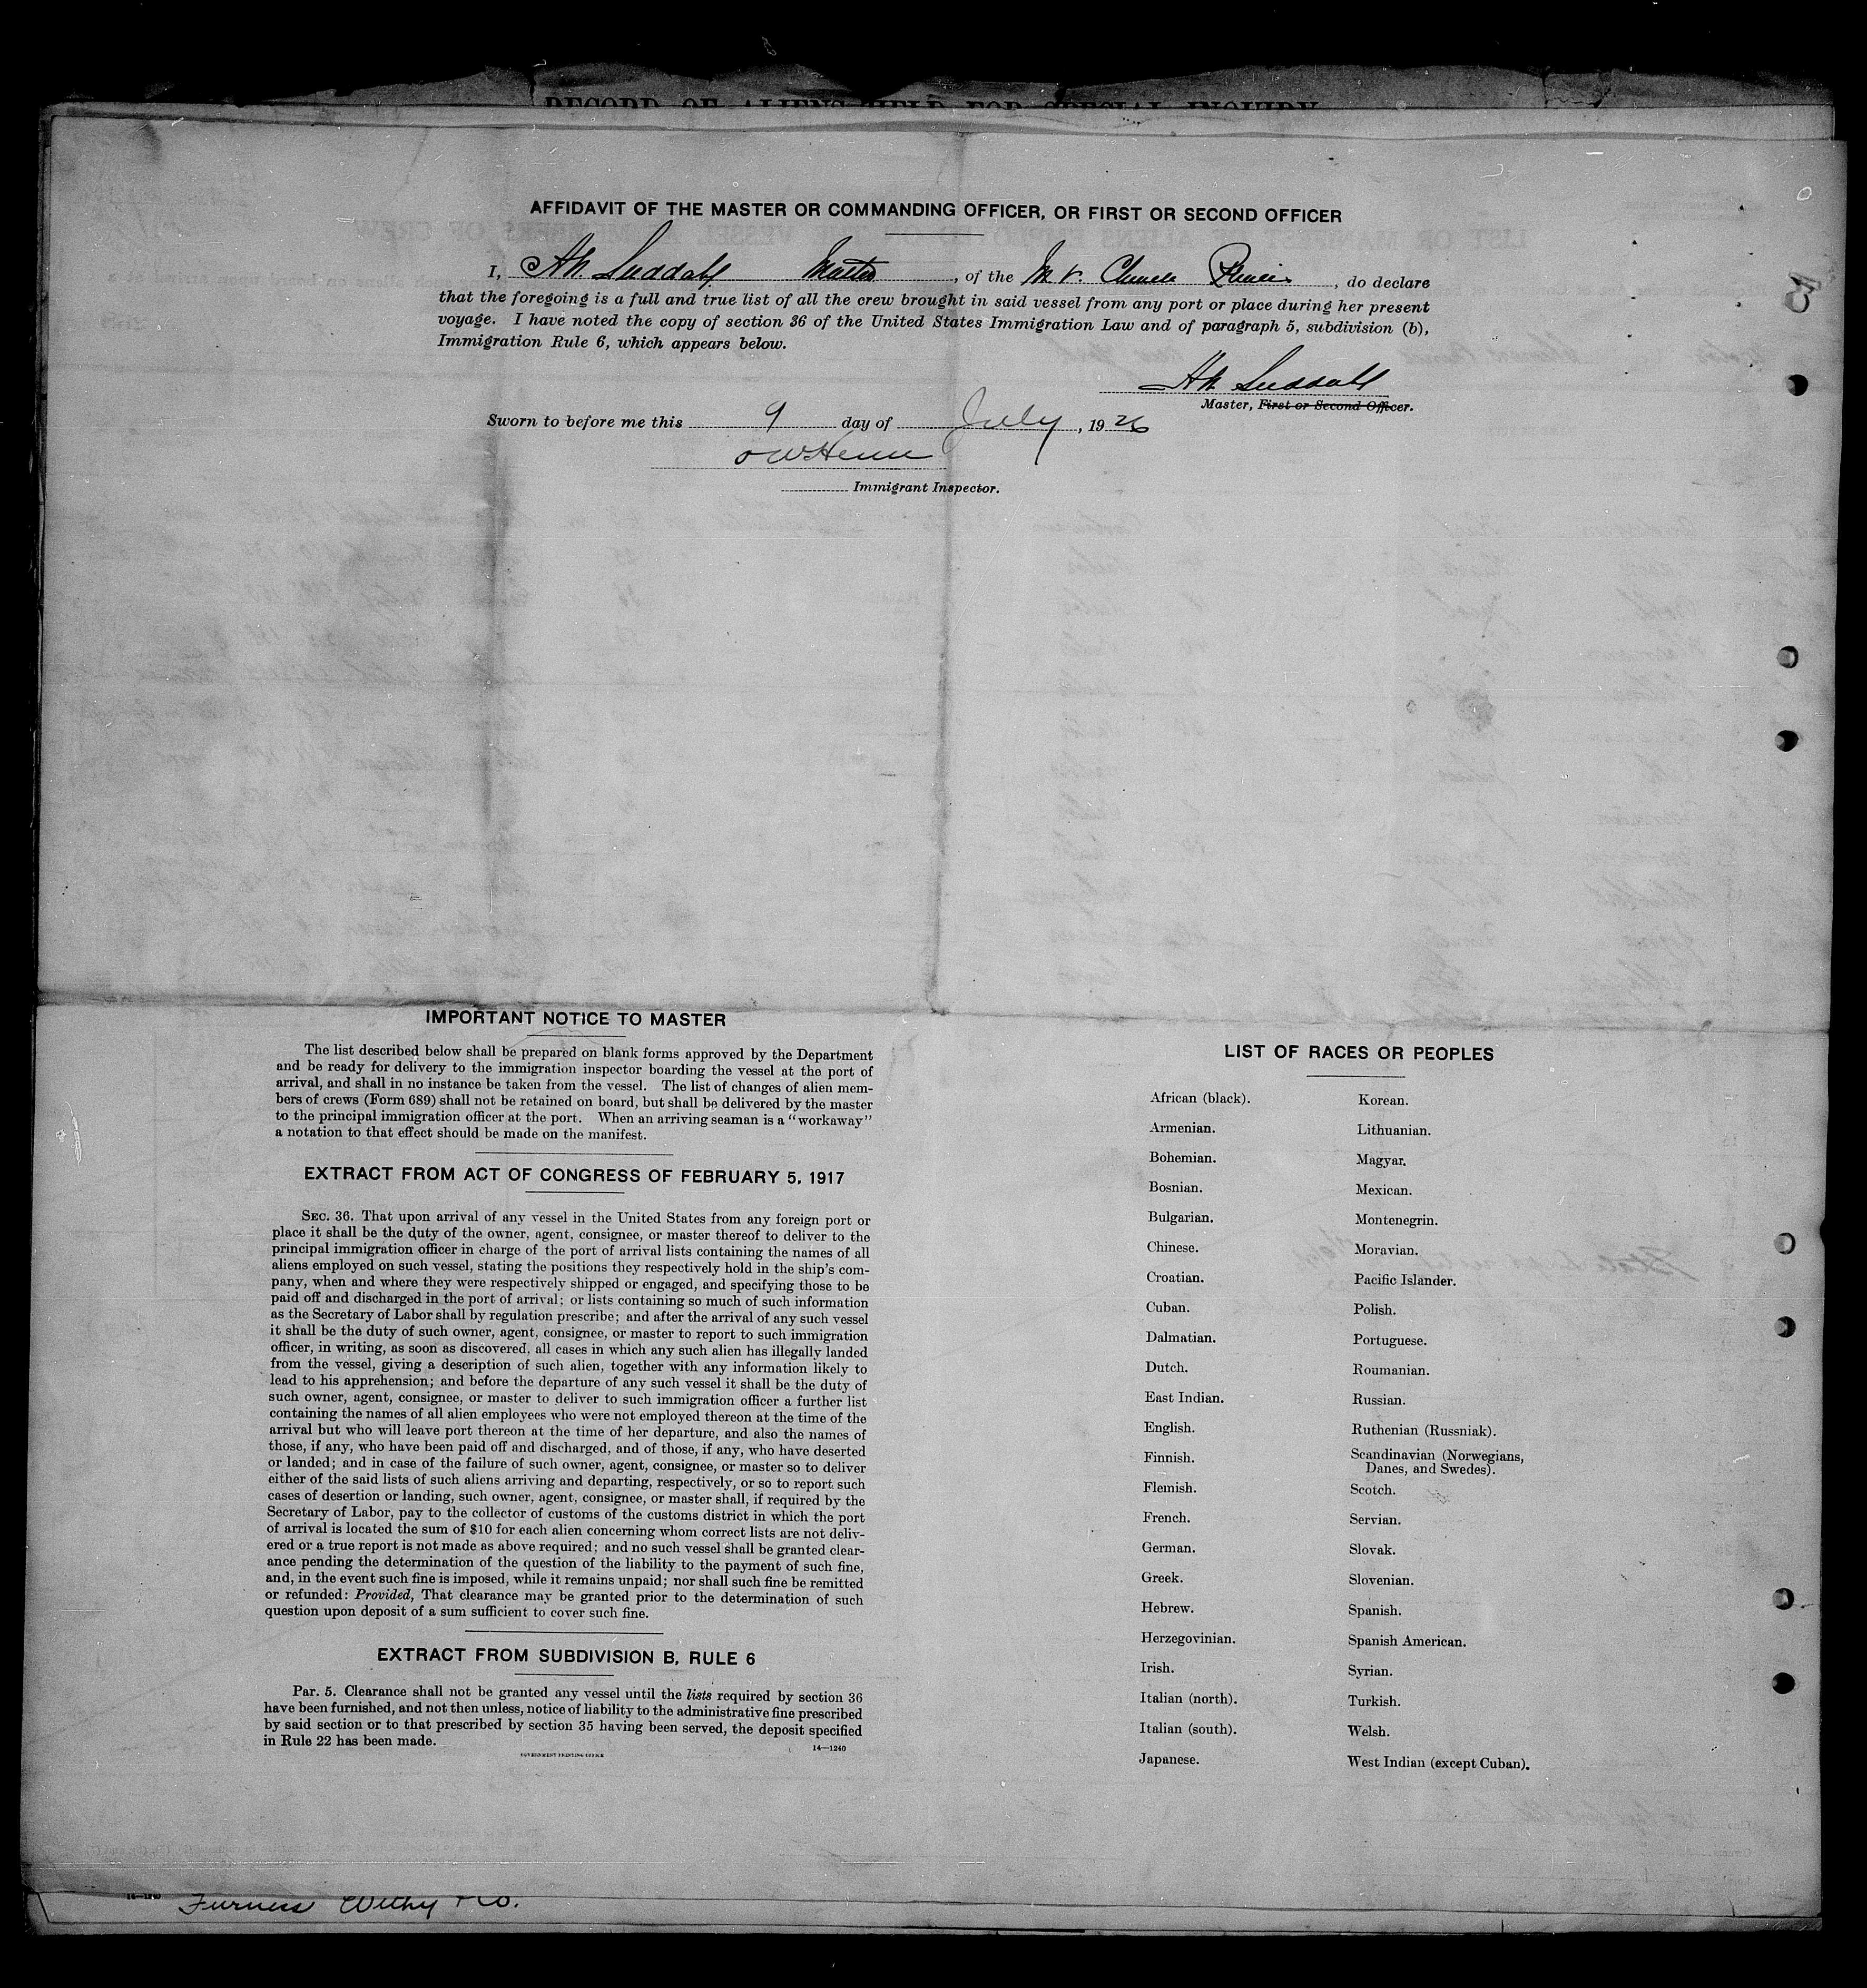 RECORD OF ALIENS HELD FOR SPECIAL INQUIRY
AFFIDAVIT OF THE MASTER OR COMMANDING OFFICER, OR FIRST OR SECOND OFFICER
I, Suddabl Master, of the M V. , do declare
that the foregoing is a full and true list of all the crew brought in said vessel from any port or place during her present
voyage. I have noted the copy of section 36 of the United States Immigration Law and of paragraph 5, subdivision (b),
Immigration Rule 6, which appears below.
Master, First or Second Officer.
Sworn to before me this 9 day of July, 1926
Immigrant Inspector.
IMPORTANT NOTICE TO MASTER
The list described below shall be prepared on blank forms approved by the Department
and be ready for delivery to the immigration inspector boarding the vessel at the port of
arrival, and shall in no instance be taken from the vessel. The list of changes of alien mem-
bers of crews (Form 689) shall not be retained on board, but shall be delivered by the master
to the principal immigration officer at the port. When an arriving seaman is a "workaway"
a notation to that effect should be made on the manifest.
EXTRACT FROM ACT OF CONGRESS OF FEBRUARY 5, 1917
SEC. 36. That upon arrival of any vessel in the United States from any foreign port or
place it shall be the duty of the owner, agent, consignee, or master thereof to deliver to the
principal immigration officer in charge of the port of arrival lists containing the names of all
aliens employed on such vessel, stating the positions they respectively hold in the ship's com-
pany, when and where they were respectively shipped or engaged, and specifying those to be
paid off and discharged in the port of arrival; or lists containing so much of such information
as the Secretary of Labor shall by regulation prescribe; and after the arrival of any such vessel
it shall be the duty of such owner, agent, consignee, or master to report to such immigration
officer, in writing, as soon as discovered, all cases in which any such alien has illegally landed
from the vessel, giving a description of such alien, together with any information likely to
lead to his apprehension; and before the departure of any such vessel it shall be the duty of
such owner, agent, consignee, or master to deliver to such immigration officer a further list
containing the names of all alien employees who were not employed thereon at the time of the
arrival but who will leave port thereon at the time of her departure, and also the names of
those, if any, who have been paid off and discharged, and of those, if any, who have deserted
or landed; and in case of the failure of such owner, agent, consignee, or master so to deliver
either of the said lists of such aliens arriving and departing, respectively, or so to report such
cases of desertion or landing, such owner, agent, consignee, or master shall, if required by the
Secretary of Labor, pay to the collector of customs of the customs district in which the port
of arrival is located the sum of $10 for each alien concerning whom correct lists are not deliv-
ered or a true report is not made as above required; and no such vessel shall be granted clear-
ance pending the determination of the question of the liability to the payment of such fine,
and, in the event such fine is imposed, while it remains unpaid; nor shall such fine be remitted
or refunded: Provided, That clearance may be granted prior to the determination of such
question upon deposit of a sum sufficient to cover such fine.
EXTRACT FROM SUBDIVISION B, RULE 6
Par. 5. Clearance shall not be granted any vessel until the lists required by section 36
have been furnished, and not then unless, notice of liability to the administrative fine prescribed
by said section or to that prescribed by section 35 having been served, the deposit specified
in Rule 22 has been made.
14—1240
GOVERNMENT PRINTING OFFICE
LIST OF RACES OR PEOPLES
African (black).
Armenian.
Bohemian.
Bosnian.
Bulgarian.
Chinese.
Croatian.
Cuban.
Dalmatian.
Dutch.
East Indian.
English.
Finnish.
Flemish.
French.
German.
Greek.
Hebrew.
Herzegovinian.
Irish.
Italian (north).
Italian (south).
Japanese.
Korean.
Lithuanian.
Magyar.
Mexican.
Montenegrin.
Moravian.
Pacific Islander.
Polish.
Portuguese.
Roumanian.
Russian.
Ruthenian (Russniak).
Scandinavian (Norwegians,
Danes, and Swedes).
Scotch.
Servian.
Slovak.
Slovenian.
Spanish.
Spanish American.
Syrian.
Turkish.
Welsh.
West Indian (except Cuban).
14—1240
Furness Withy + Co.